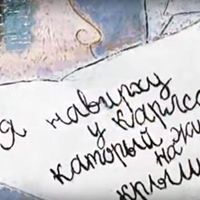 Я наверху
у Карлсо
который жи
на
крыш